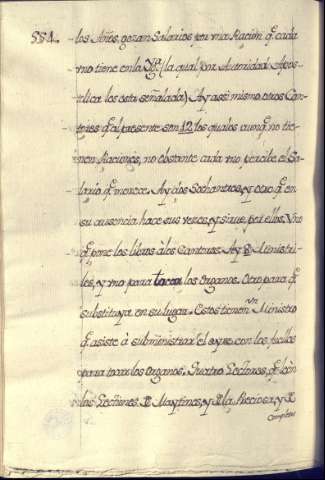 554.
los Años, gozan Salarios por una Ración q̃ cada
uno tiene en la Ygª (la qual por Autoridad Apos-
tolica les esta señalada) Ay assi mismo otros Can-
tores q̃ al presente son 12 los quales aunq̃ no tie-
nen Raciones, no obstante cada uno percibe el Sa-
lario q̃ merece. Ay dos Sochantres, y otro q̃ en
su ausencia hace sus veces, y sirve por ellos. Uno
q̃ pone los libros à los Cantores. Ay 8 Ministri-
les, y uno para tocar los Organos. Otro para q̃
substituya en su lugar. Estos tienen un Ministro
q̃ asiste à subministrar el ayre con los fuelles
para tocar los Organos. Quatro Lectores, q̃ leàn
las Lecciones Maytines, y la Preciosa, y
Completas